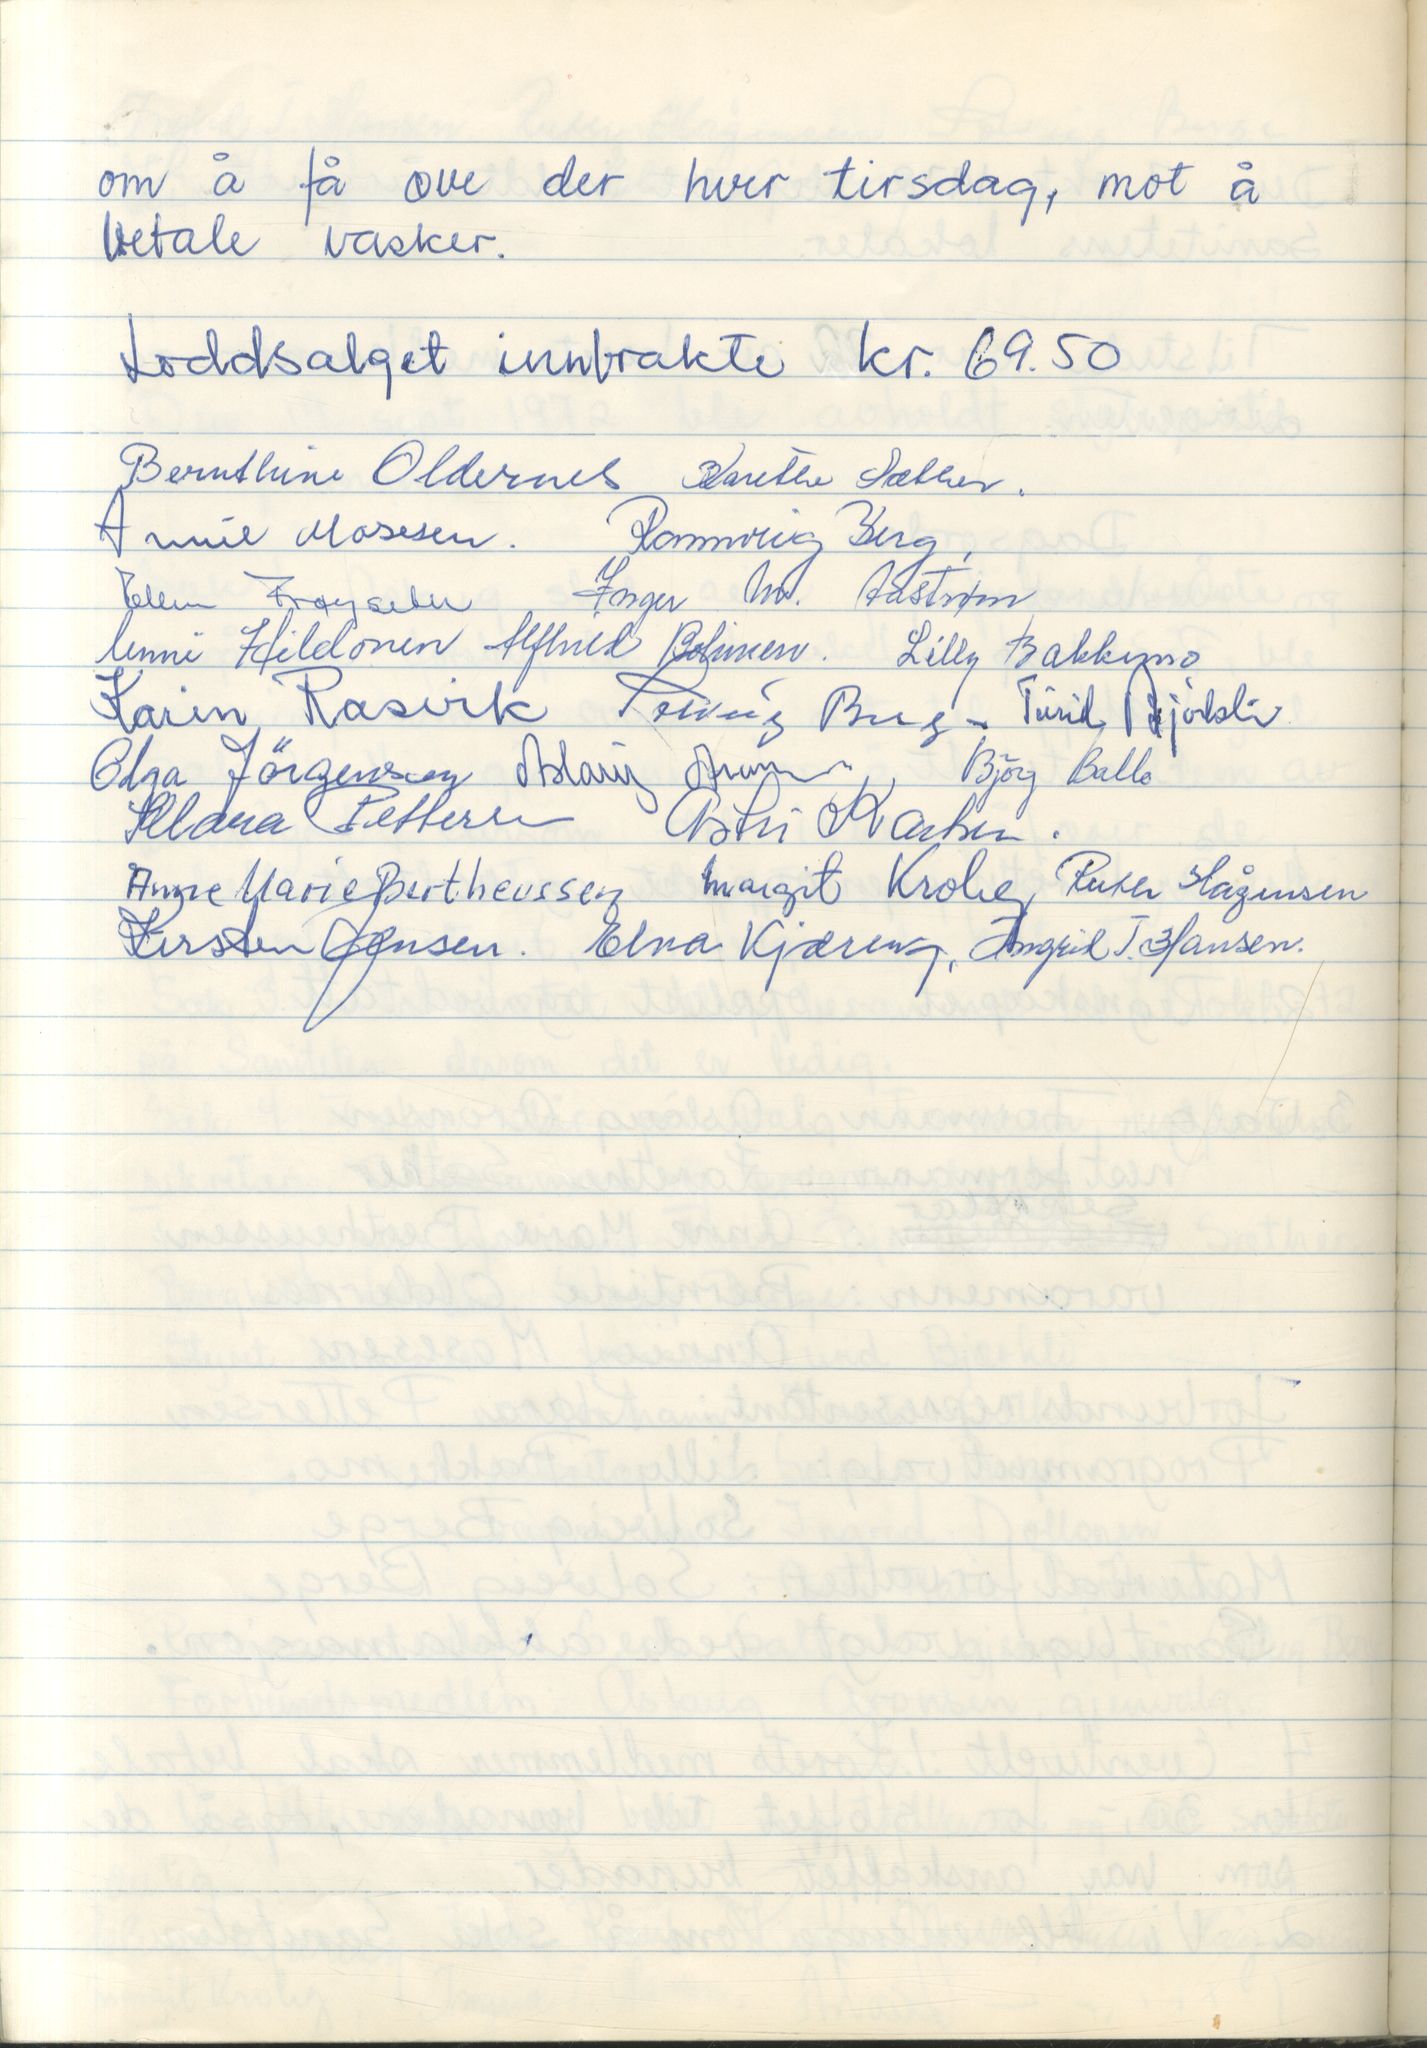 om å få øve der hver tirsdag, mot å
betale vasker.
Loddsalget innbrakte kr. 69.50
Bernthine Oldernes Karethe Sæther.
Annie Mosesen. Rannveig Berg,
Ellen Inger M. Aastrøm
Unni Hildonen Alfhild Lilly Bakkemo
Karin Rasvik Solveig Berg - Turid
Olga Jörgensen Aslaug Bjørg Balto
Klara Pettersen Astri Karlsen.
Anne Marie Bertheussen Margit Krohg, Ruth Hågensen
Kirsten Jensen. Elna Kjæreng, Ingrid J. Hansen.